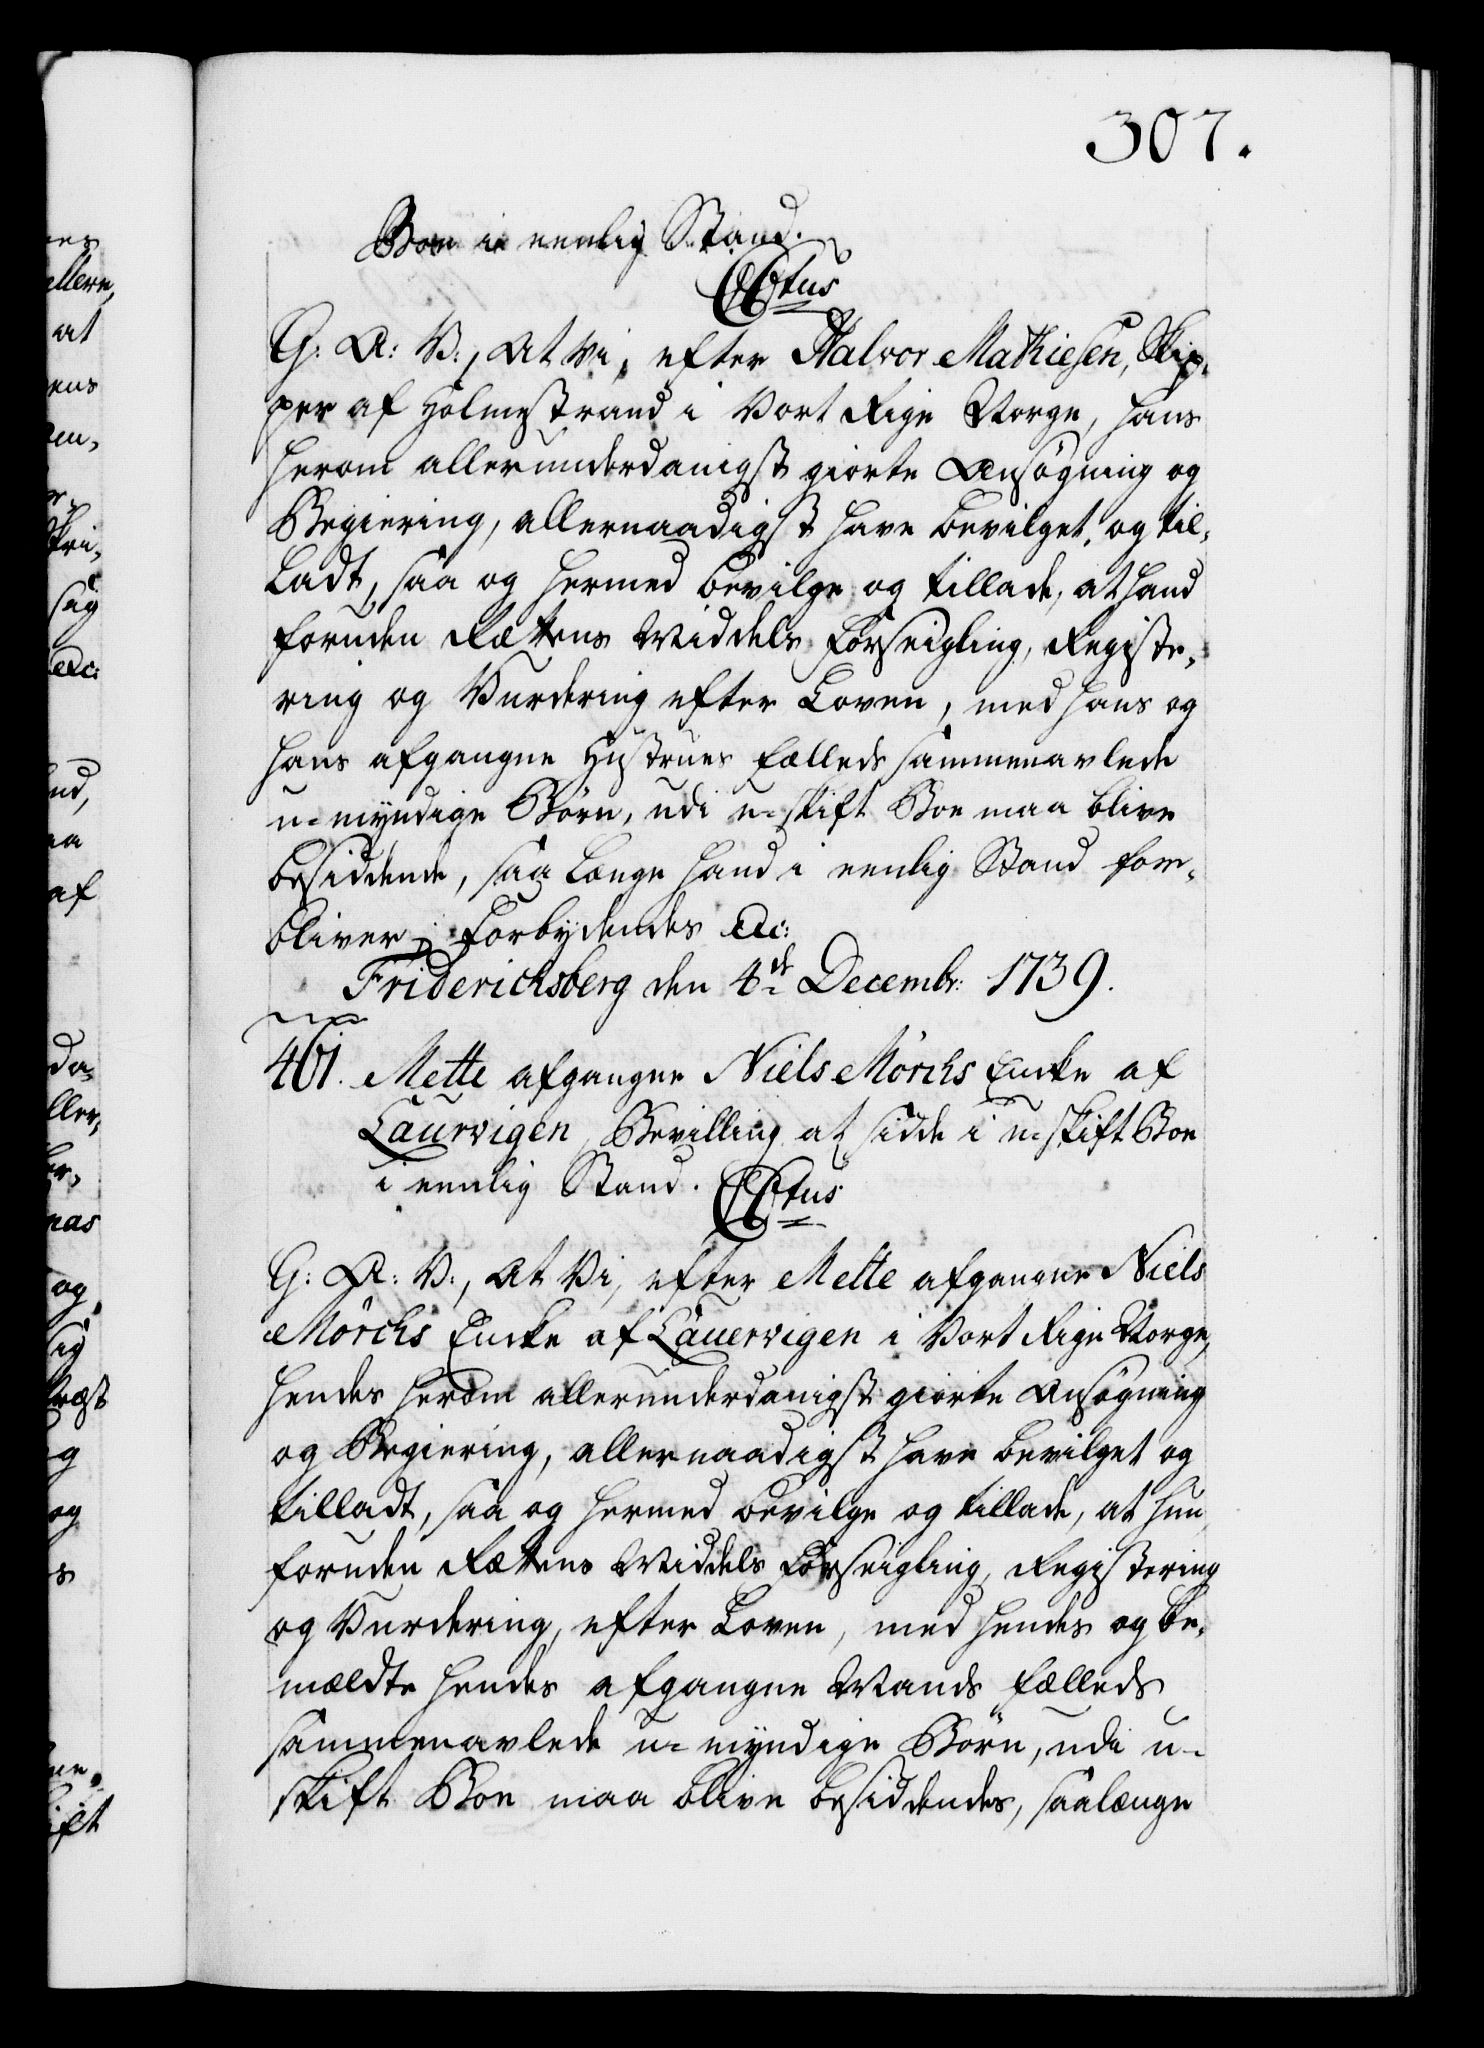 307.
Boe i eenlig Stand.
CCtus
G: A: V:, At Vi, efter Halvor Mathiesen, Skip-
per af Holmestrand i Vort Rige Norge, hans
herom allerunderdanigst giorte Ansögning og
Begiering, allernaadigst have bevilget, og til-
ladt, saa og hermed bevilge og tillade, at hand
foruden Rættens Middels Forseigling, Registe-
ring og Vurdering efter Loven, med hans og
hans afgangne Hustrues fælleds sammenavlede
u-myndige Börn, udi u-skift Boe maa blive
besiddende, saa længe hand i eenlig Stand for-
bliver; Forbydendes &c:
Friderichsberg den 4de Decembr: 1739.
461. Mette afgangne Niels Mörchs Encke af
Laurvigen, Bevilling at sidde i u-skift Boe
i eenlig Stand. CCtus
G: A: V:, At Vi, efter Mette afgangne Niels
Mörchs Encke af Lauervigen i Vort Rige Norge,
hendes herom allerunderdanigst giorte Ansögning
og Begiering, allernaadigst have bevilget og
tilladt, saa og hermed bevilge og tillade, at hun,
foruden Rættens Middels Forseigling, Registering
og Vurdering, efter Loven, med hendes og be-
mældte hendes afgangne Mands fælleds
sammenavlede u-myndige Börn, udi u-
skift Boe maa blive besiddendes, saalænge